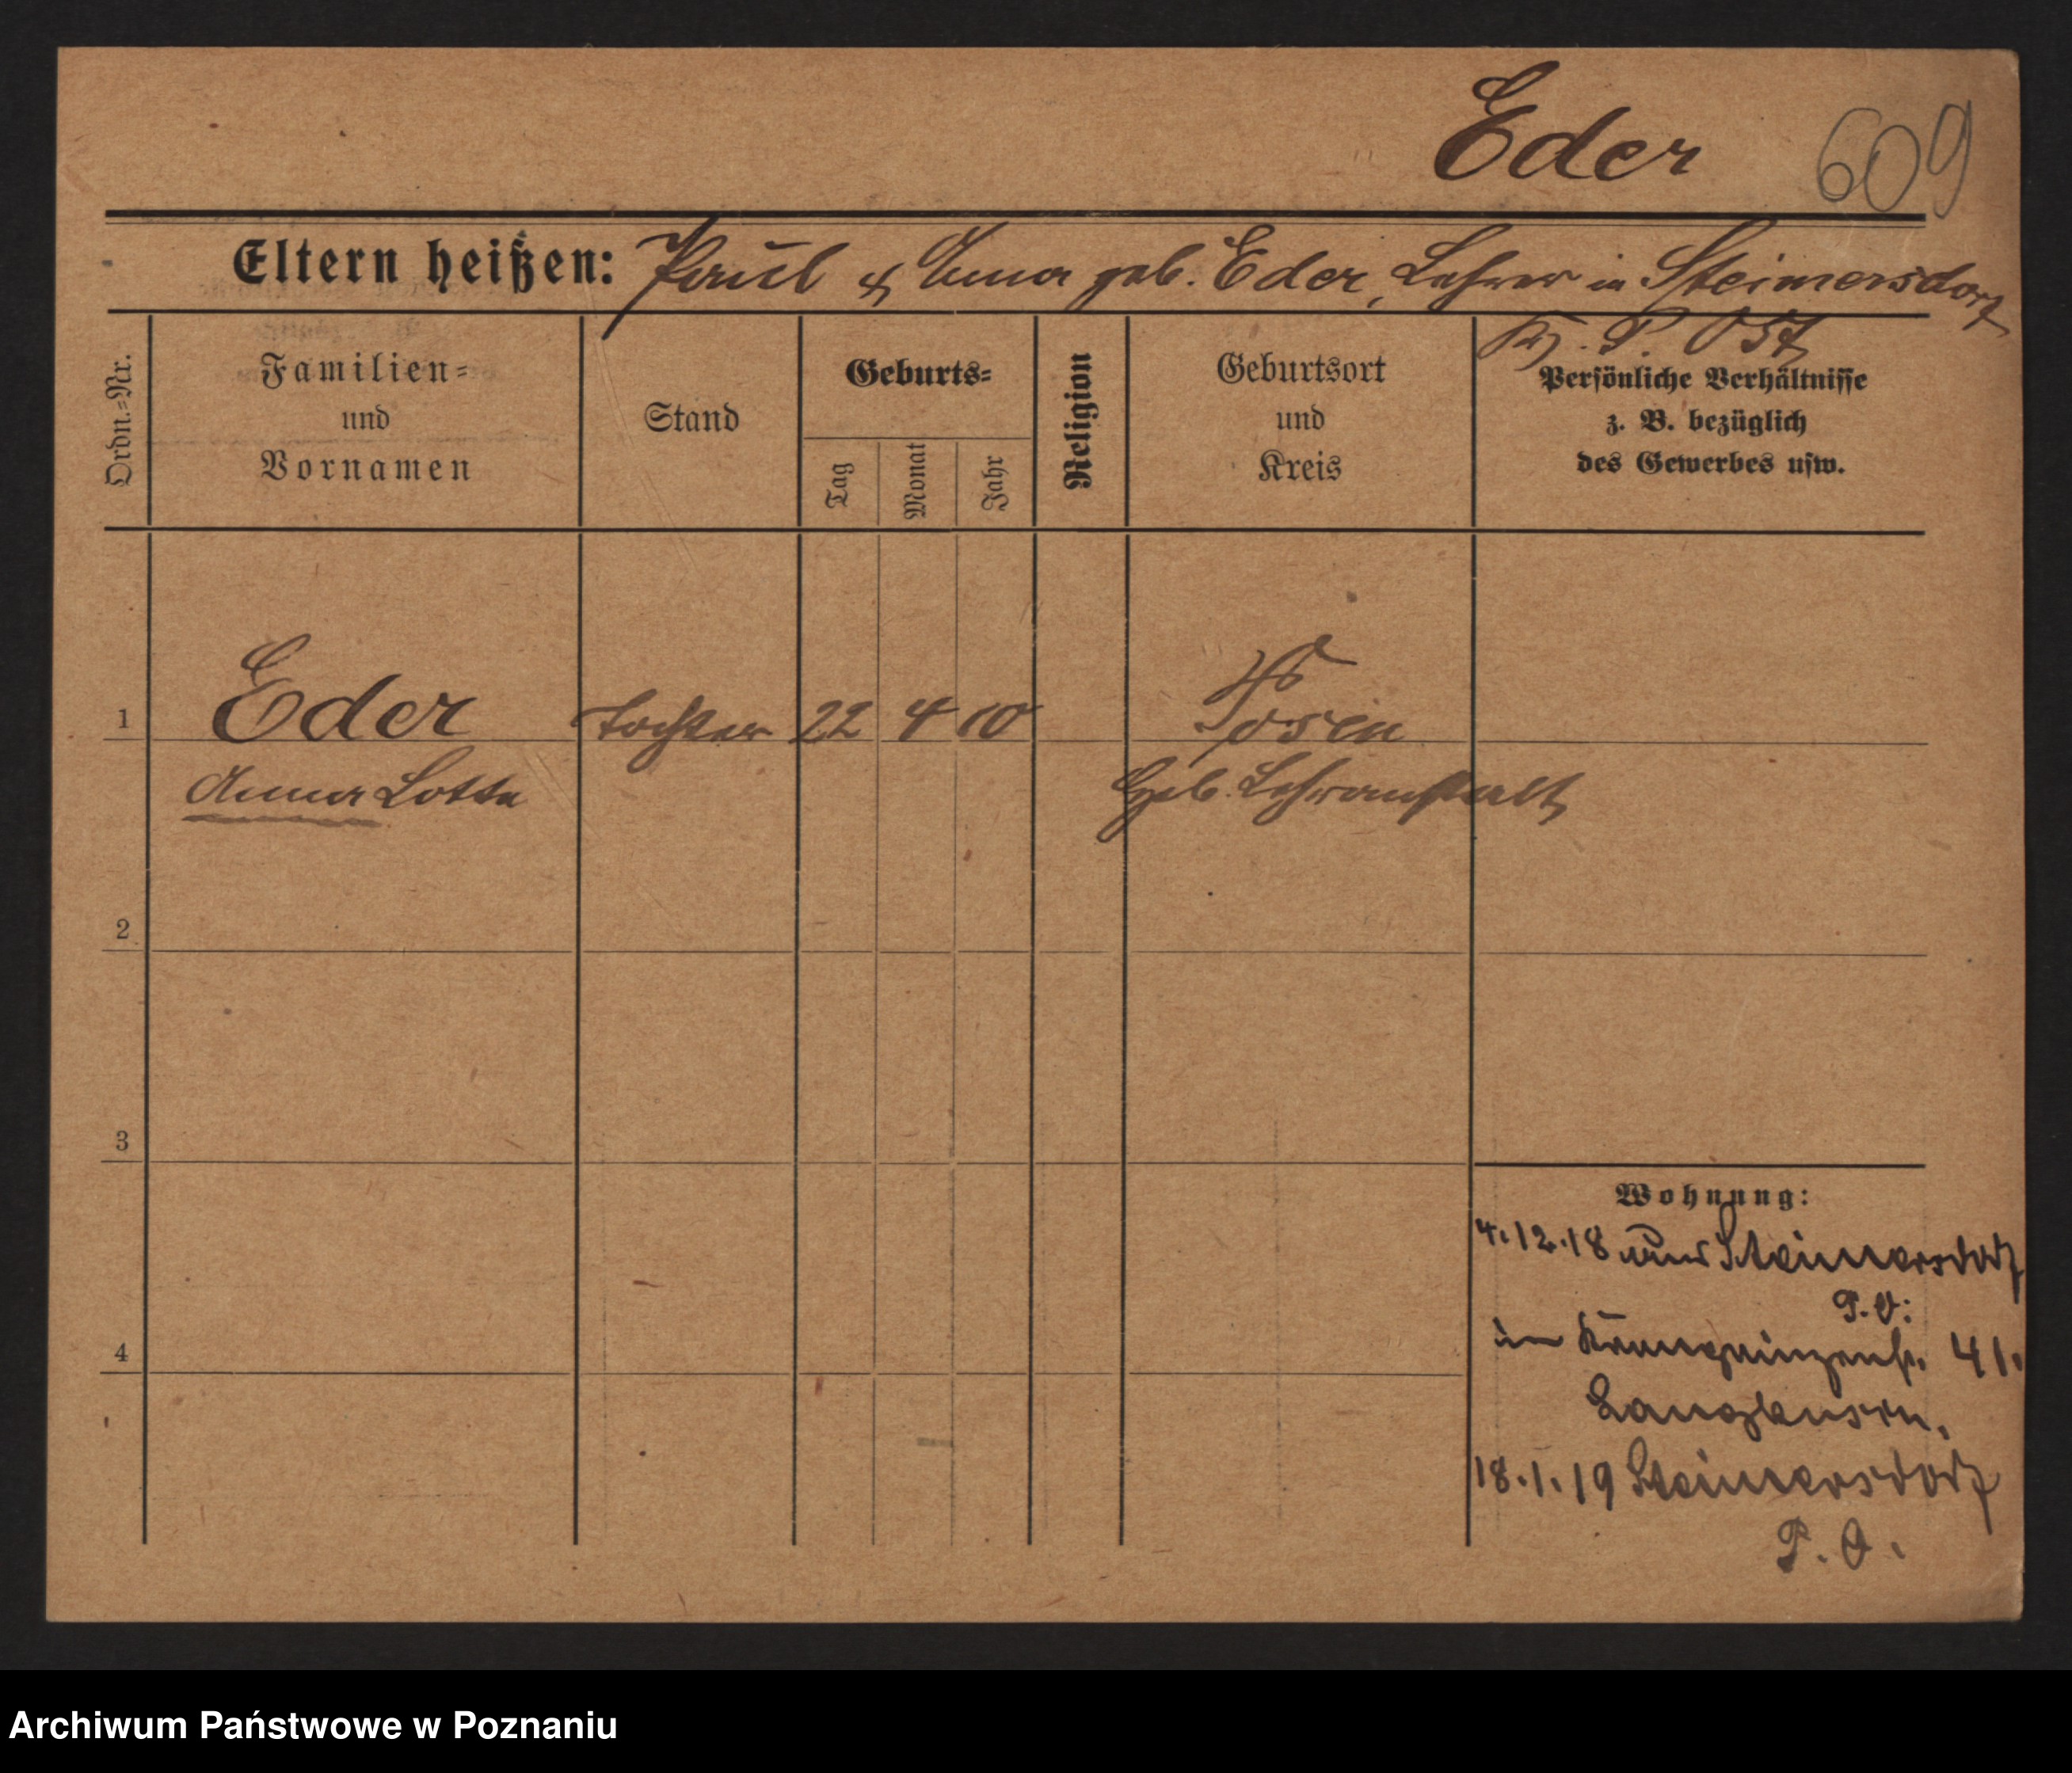 Eder 609
Eltern heißen: Paul & Anna geb. Eder, Lehrer in Steimersdorf
Kr. P. Ost
Ordn.=Nr.
Familien=
und
Vornamen
Stand
Geburts=
Tag
Monat
Jahr
Religion
Geburtsort
und
Kreis
Persönliche Verhältnisse
z. B. bezüglich
des Gewerbes usw.
1 Eder Tochter 22 4 10 Posen
Anna Lotte Geb. Lehranstalt
2
3
4
Wohnung:
4.12.18 Steimersdorf
P.O.
in Kronprinzenstr. 41.
18.1.19 Steimersdorf
P.O.
Archiwum Państwowe w Poznaniu